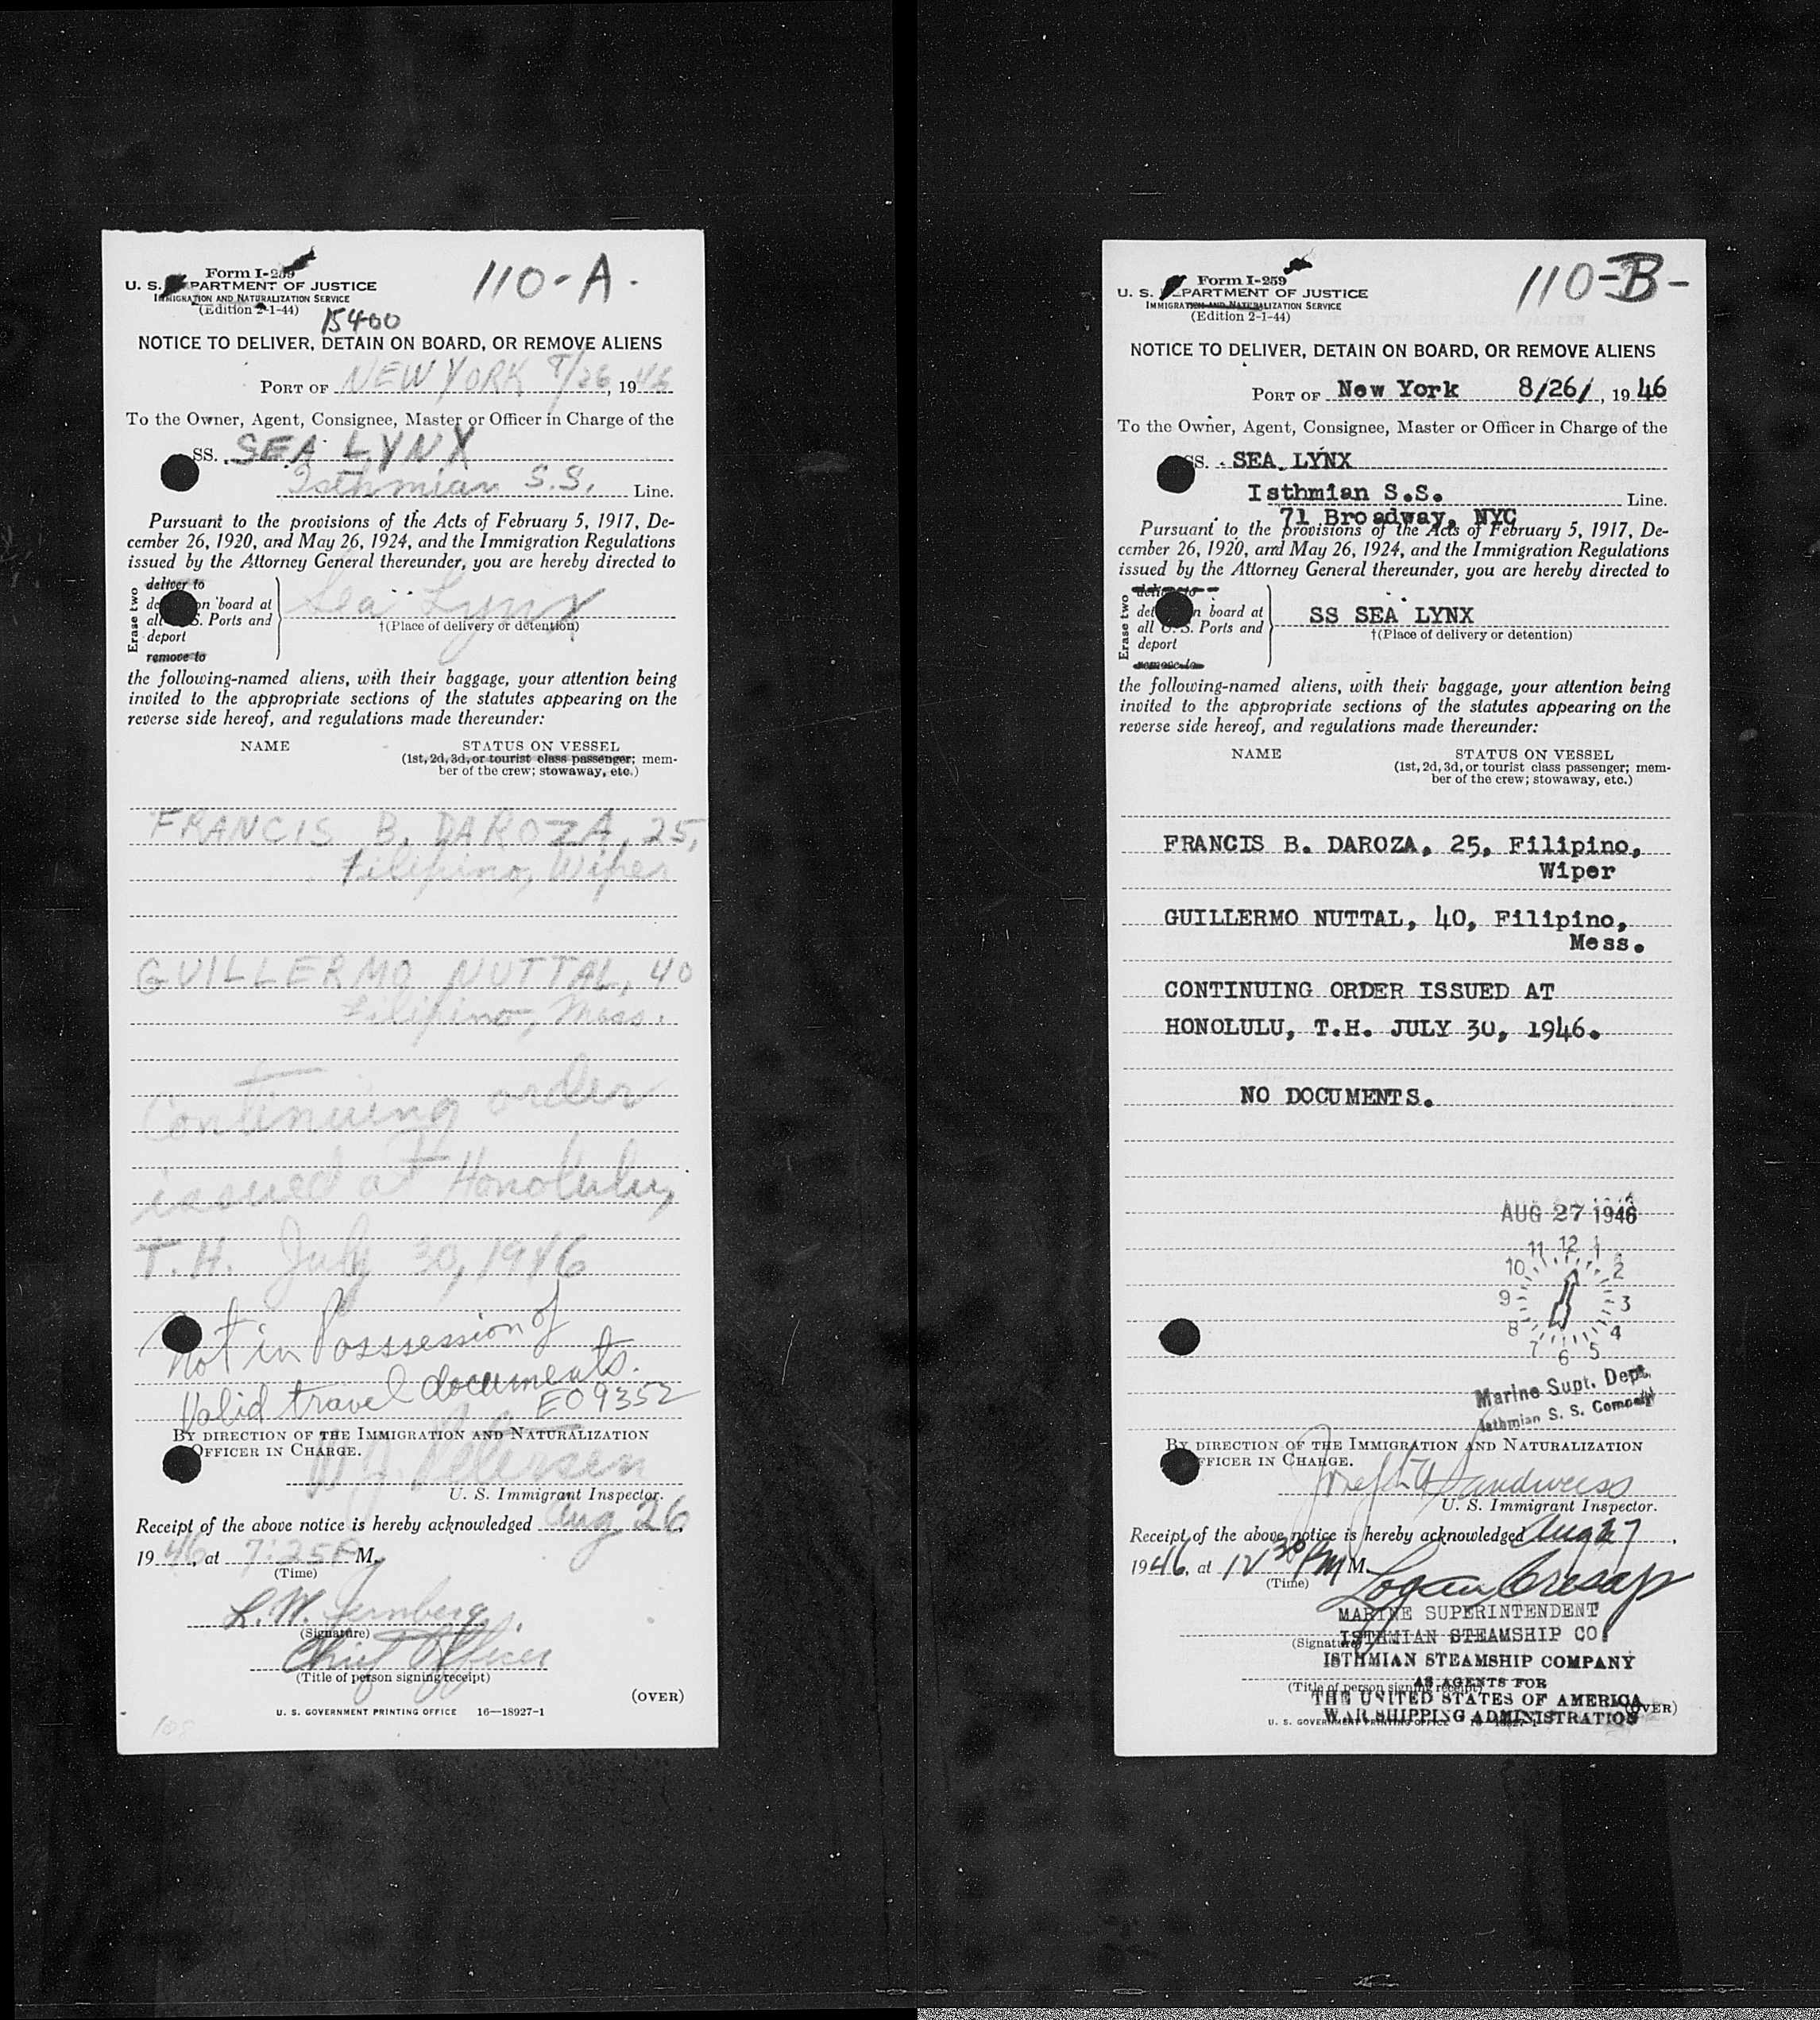 Form I-259
U. S. DEPARTMENT OF JUSTICE
IMMIGRATION AND NATURALIZATION SERVICE
(Edition 2-1-44)
110-A.
15400
NOTICE TO DELIVER, DETAIN ON BOARD, OR REMOVE ALIENS
PORT OF NEW YORK 8/26, 1946
To the Owner, Agent, Consignee, Master or Officer in Charge of the
SS. SEA LYNX
Isthmian S.S. Line.
Pursuant to the provisions of the Acts of February 5, 1917, De-
cember 26, 1920, and May 26, 1924, and the Immigration Regulations
issued by the Attorney General thereunder, you are hereby directed to
Erase two
deliver to
detain on board at
all U. S. Ports and
deport
remove to
Sea Lynx
†(Place of delivery or detention)
the following-named aliens, with their baggage, your attention being
invited to the appropriate sections of the statutes appearing on the
reverse side hereof, and regulations made thereunder:
NAME STATUS ON VESSEL
(1st, 2d, 3d, or tourist class passenger; mem-
ber of the crew; stowaway, etc.)
FRANCIS B. DAROZA, 25,
Filipino, Wiper
GUILLERMO NUTTAL, 40
Filipino, Mess.
Continuing order
issued at Honolulu,
T.H. July 30, 1946
Not in Posssession of
Valid travel documents.
EO 9352
BY DIRECTION OF THE IMMIGRATION AND NATURALIZATION
OFFICER IN CHARGE.
Petersen
U. S. Immigrant Inspector.
Receipt of the above notice is hereby acknowledged Aug 26,
1946, at 7:25 P M.
(Time)
L. W. Fernberg
(Signature)
Chief Officer
(Title of person signing receipt)
(OVER)
U. S. GOVERNMENT PRINTING OFFICE 16—18927-1
105
Form I-259
U. S. DEPARTMENT OF JUSTICE
IMMIGRATION AND NATURALIZATION SERVICE
(Edition 2-1-44)
110-B-
NOTICE TO DELIVER, DETAIN ON BOARD, OR REMOVE ALIENS
PORT OF New York 8/26/, 1946
To the Owner, Agent, Consignee, Master or Officer in Charge of the
SS. SEA LYNX
Isthmian S.S. Line.
71 Broadway, NYC
Pursuant to the provisions of the Acts of February 5, 1917, De-
cember 26, 1920, and May 26, 1924, and the Immigration Regulations
issued by the Attorney General thereunder, you are hereby directed to
Erase two
deliver to
detain on board at
all U. S. Ports and
deport
remove to
SS SEA LYNX
†(Place of delivery or detention)
the following-named aliens, with their baggage, your attention being
invited to the appropriate sections of the statutes appearing on the
reverse side hereof, and regulations made thereunder:
NAME STATUS ON VESSEL
(1st, 2d, 3d, or tourist class passenger; mem-
ber of the crew; stowaway, etc.)
FRANCIS B. DAROZA, 25, Filipino,
Wiper
GUILLERMO NUTTAL, 40, Filipino,
Mess.
CONTINUING ORDER ISSUED AT
HONOLULU, T.H. JULY 30, 1946.
NO DOCUMENTS.
AUG 27 1946
11 12 1
10 2
9 3
8 4
7 6 5
Marine Supt. Dept.
Isthmian S. S. Company
BY DIRECTION OF THE IMMIGRATION AND NATURALIZATION
OFFICER IN CHARGE.
Joseph A Sandweiss
U. S. Immigrant Inspector.
Receipt of the above notice is hereby acknowledged Aug 27,
1946, at 12 30 PM M.
(Time)
Logan Cresap
MARINE SUPERINTENDENT
(Signature) ISTHMIAN STEAMSHIP CO.
ISTHMIAN STEAMSHIP COMPANY
AS AGENTS FOR
(Title of person signing receipt)
THE UNITED STATES OF AMERICA
(OVER)
WAR SHIPPING ADMINISTRATION
U. S. GOVERNMENT PRINTING OFFICE 16—18927-1